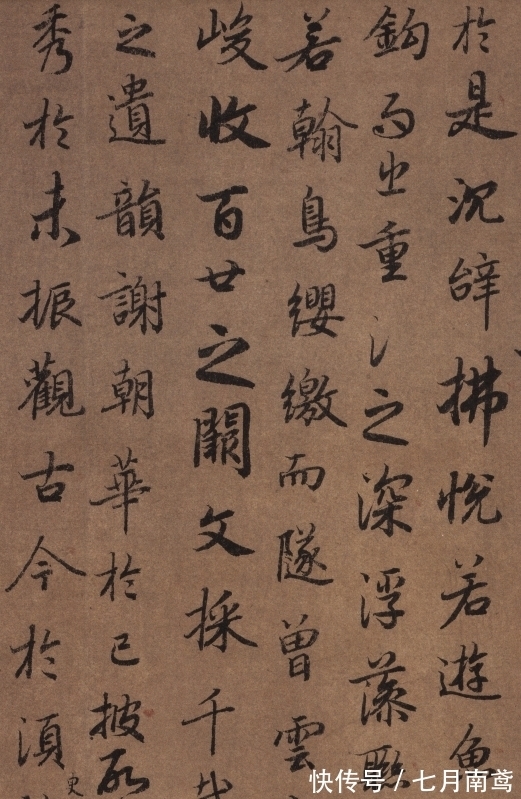 於是沉辭拂悅若遊魚
鈎而出重之深浮藻聯
若翰鳥纓繳而隧曾雲
峻收百世之闕文採千載
之遺韻謝朝華於已披啓
秀於未振觀古今於須臾
快传号 / 七月南鸢